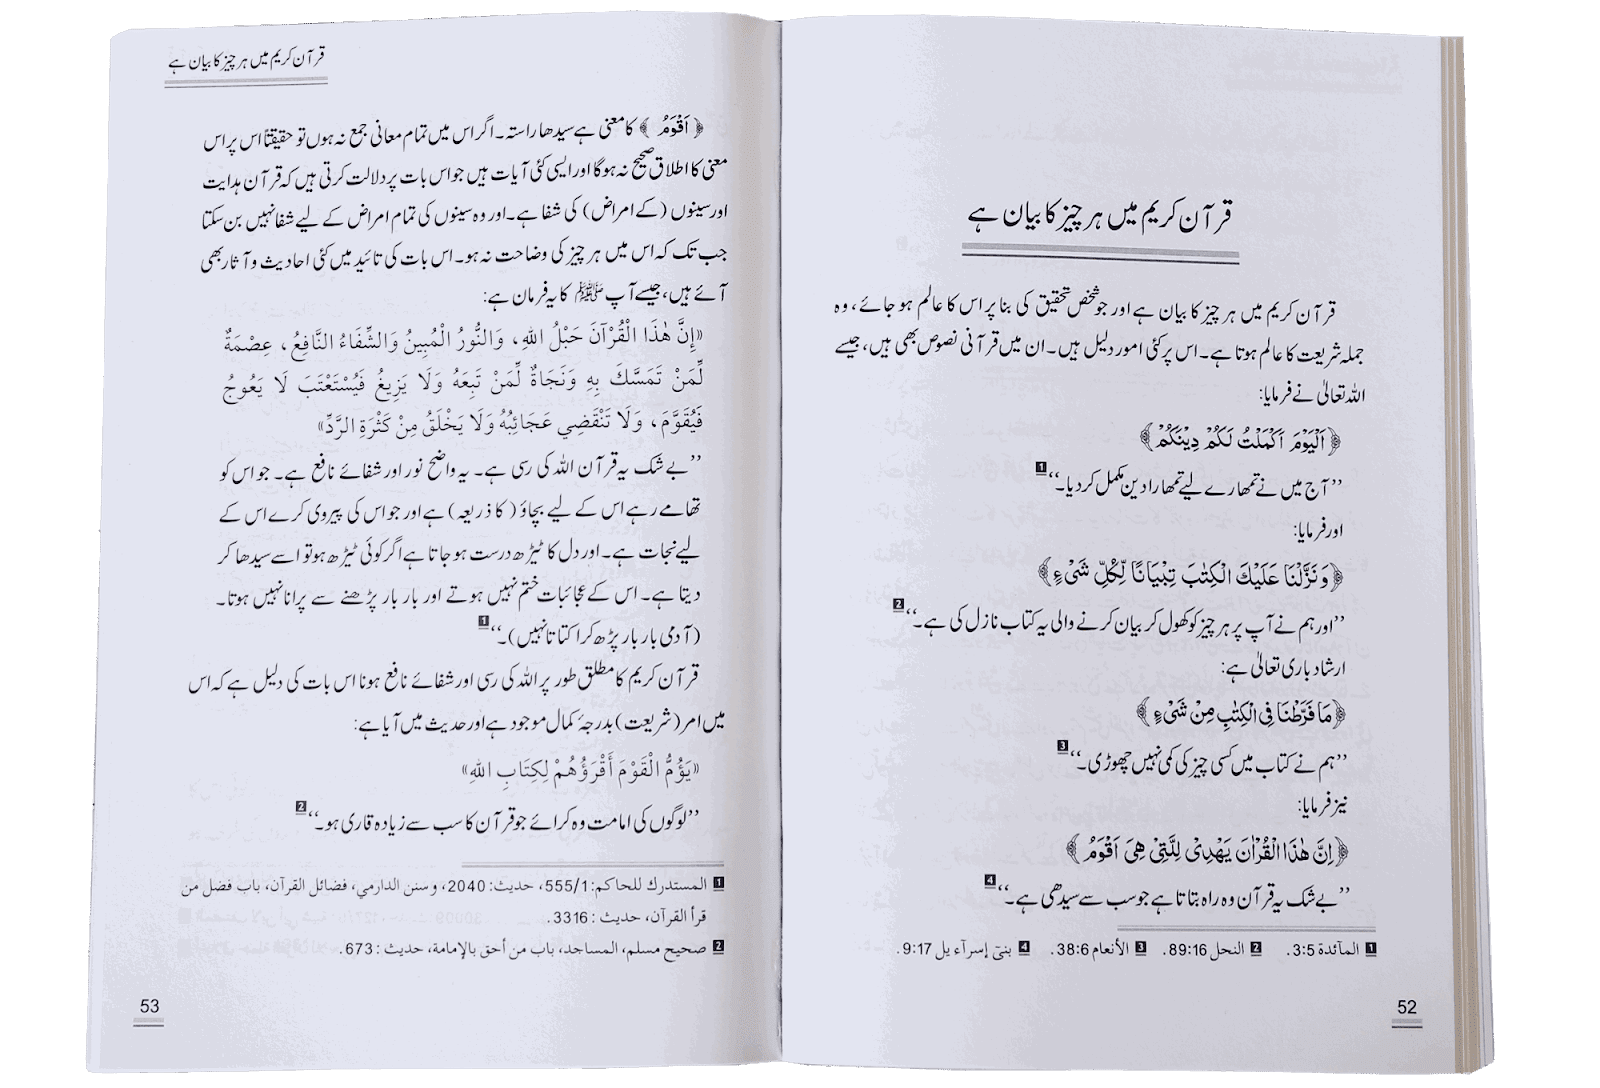 قرآن کریم میں ہر چیز کا بیان ہے
قرآن کریم میں ہر چیز کا بیان ہے اور جو شخص تحقیق کی بنا پر اس کا عالم ہو جائے، وہ
جملہ شریعت کا عالم ہوتا ہے۔ اس پر کئی امور دلیل ہیں۔ ان میں قرآنی نصوص بھی ہیں، جیسے
اللہ تعالیٰ نے فرمایا:
﴿اَلْيَوْمَ اَكْمَلْتُ لَكُمْ دِيْنَكُمْ﴾
’’آج میں نے تمھارے لیے تمھارا دین مکمل کر دیا۔‘‘ 1
اور فرمایا:
﴿وَنَزَّلْنَا عَلَيْكَ الْكِتٰبَ تِبْيَانًا لِّكُلِّ شَيْءٍ﴾
’’اور ہم نے آپ پر ہر چیز کو کھول کر بیان کرنے والی یہ کتاب نازل کی ہے۔‘‘ 2
ارشاد باری تعالیٰ ہے:
﴿مَا فَرَّطْنَا فِي الْكِتٰبِ مِنْ شَيْءٍ﴾
’’ہم نے کتاب میں کسی چیز کی کمی نہیں چھوڑی۔‘‘ 3
نیز فرمایا:
﴿اِنَّ هٰذَا الْقُرْاٰنَ يَهْدِيْ لِلَّتِيْ هِيَ اَقْوَمُ﴾
’’بے شک یہ قرآن وہ راہ بتاتا ہے جو سب سے سیدھی ہے۔‘‘ 4
1 المآئدة 3:5. 2 النحل 89:16. 3 الأنعام 38:6. 4 بنيٓ إسرآءيل 9:17.
52
قرآن کریم میں ہر چیز کا بیان ہے
﴿اَقْوَمُ﴾ کا معنی ہے سیدھا راستہ۔ اگر اس میں تمام معانی جمع نہ ہوں تو حقیقتاً اس پر اس
معنی کا اطلاق صحیح نہ ہوگا اور ایسی کئی آیات ہیں جو اس بات پر دلالت کرتی ہیں کہ قرآن ہدایت
اور سینوں (کے امراض) کی شفا ہے۔ اور وہ سینوں کی تمام امراض کے لیے شفا نہیں بن سکتا
جب تک کہ اس میں ہر چیز کی وضاحت نہ ہو۔ اس بات کی تائید میں کئی احادیث و آثار بھی
آئے ہیں، جیسے آپ ﷺ کا یہ فرمان ہے:
«إِنَّ هٰذَا الْقُرْآنَ حَبْلُ اللهِ، وَالنُّورُ الْمُبِينُ وَالشِّفَاءُ النَّافِعُ، عِصْمَةٌ
لِّمَنْ تَمَسَّكَ بِهِ وَنَجَاةٌ لِّمَنْ تَبِعَهُ وَلَا يَزِيغُ فَيُسْتَعْتَبَ لَا يَعُوجُ
فَيُقَوَّمَ، وَلَا تَنْقَضِي عَجَائِبُهُ وَلَا يَخْلَقُ مِنْ كَثْرَةِ الرَّدِّ»
’’بے شک یہ قرآن اللہ کی رسی ہے۔ یہ واضح نور اور شفائے نافع ہے۔ جو اس کو
تھامے رہے اس کے لیے بچاؤ (کا ذریعہ) ہے اور جو اس کی پیروی کرے اس کے
لیے نجات ہے۔ اور دل کا ٹیڑھ درست ہو جاتا ہے اگر کوئی ٹیڑھ ہو تو اسے سیدھا کر
دیتا ہے۔ اس کے عجائبات ختم نہیں ہوتے اور بار بار پڑھنے سے پرانا نہیں ہوتا۔
(آدمی بار بار پڑھ کر اکتاتا نہیں)۔‘‘ 1
قرآن کریم کا مطلق طور پر اللہ کی رسی اور شفائے نافع ہونا اس بات کی دلیل ہے کہ اس
میں امر (شریعت) بدرجۂ کمال موجود ہے اور حدیث میں آیا ہے:
«يَؤُمُّ الْقَوْمَ أَقْرَؤُهُمْ لِكِتَابِ اللهِ»
’’لوگوں کی امامت وہ کرائے جو قرآن کا سب سے زیادہ قاری ہو۔‘‘ 2
1 المستدرك للحاكم: 555/1، حديث: 2040، وسنن الدارمي، فضائل القرآن، باب فضل من
قرأ القرآن، حديث: 3316.
2 صحيح مسلم، المساجد، باب من أحق بالإمامة، حديث: 673.
53